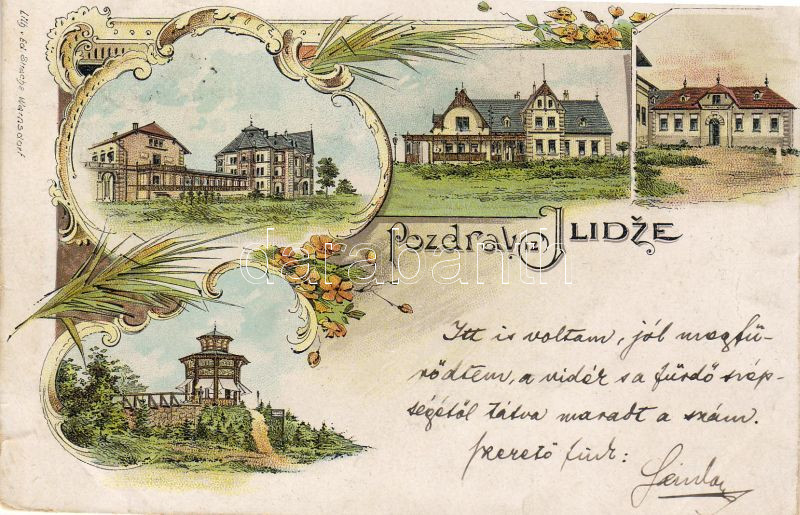 Lith. v. Ed. Strache Warnsdorf
Pozdrav iz ILIDŽE
darabanth
Itt is voltam, jól megfü-
rödtem, a vidék s a fürdő szép-
ségétől tátva maradt a szám.
szerető fiúk:
Sándor